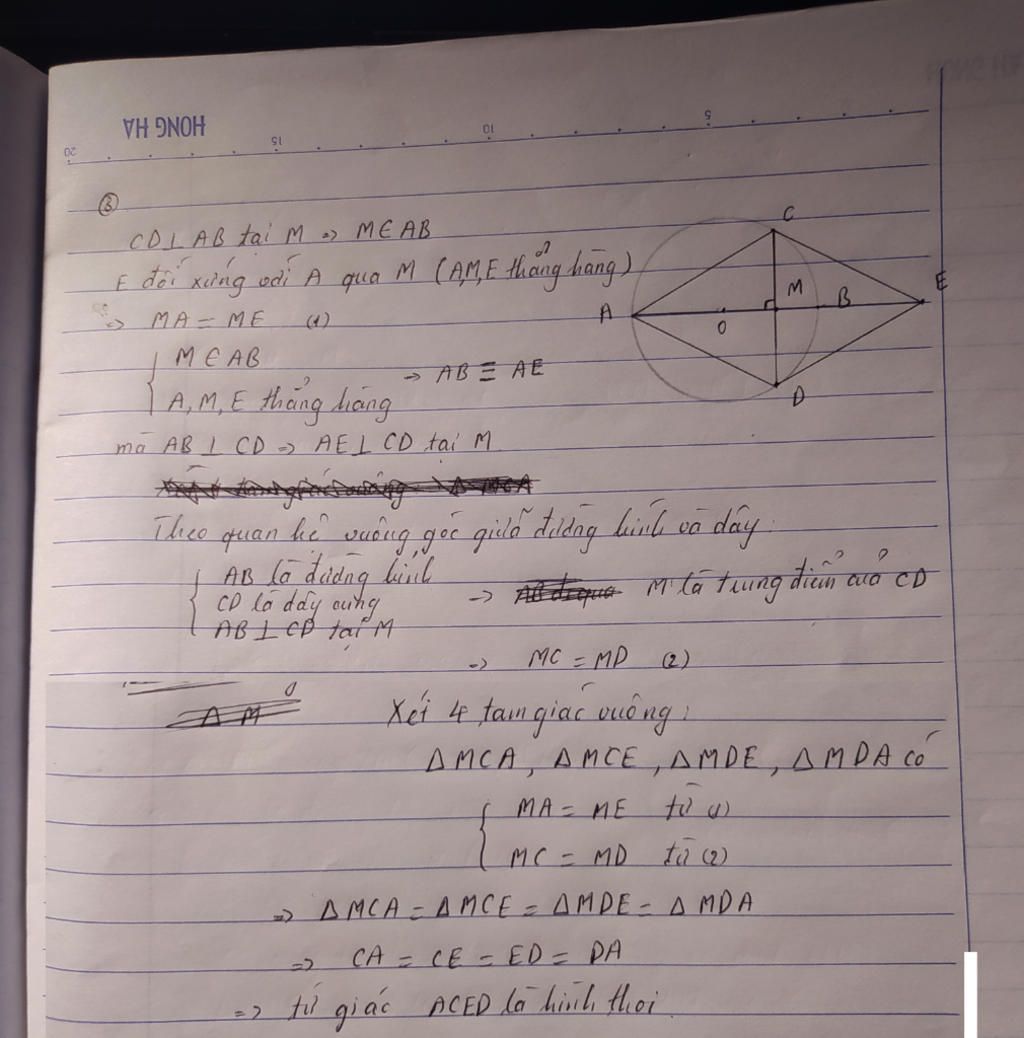 HONG HA
20 15 10 5
③
CD ⊥ AB tại M => M ∈ AB
E đối xứng với A qua M (A,M,E thẳng hàng)
=> MA = ME (1)
M ∈ AB
A, M, E thẳng hàng
→ AB ≡ AE
mà AB ⊥ CD => AE ⊥ CD tại M
Theo quan hệ vuông góc giữa đường kính và dây:
AB là đường kính
CD là dây cung
AB ⊥ CD tại M
→ M là trung điểm của CD
→ MC = MD (2)
Xét 4 tam giác vuông:
ΔMCA, ΔMCE, ΔMDE, ΔMDA có
MA = ME từ (1)
MC = MD từ (2)
=> ΔMCA = ΔMCE = ΔMDE = ΔMDA
=> CA = CE = ED = DA
=> tứ giác ACED là hình thoi.
C
M
B
E
A
O
D